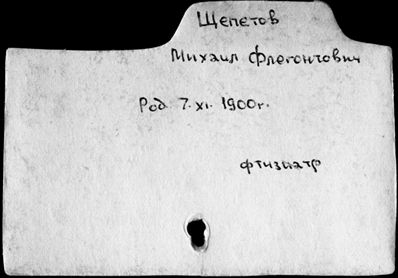 Щепетов
Михаил Флегонтович
Род. 7.XI.1900г.
фтизиатр